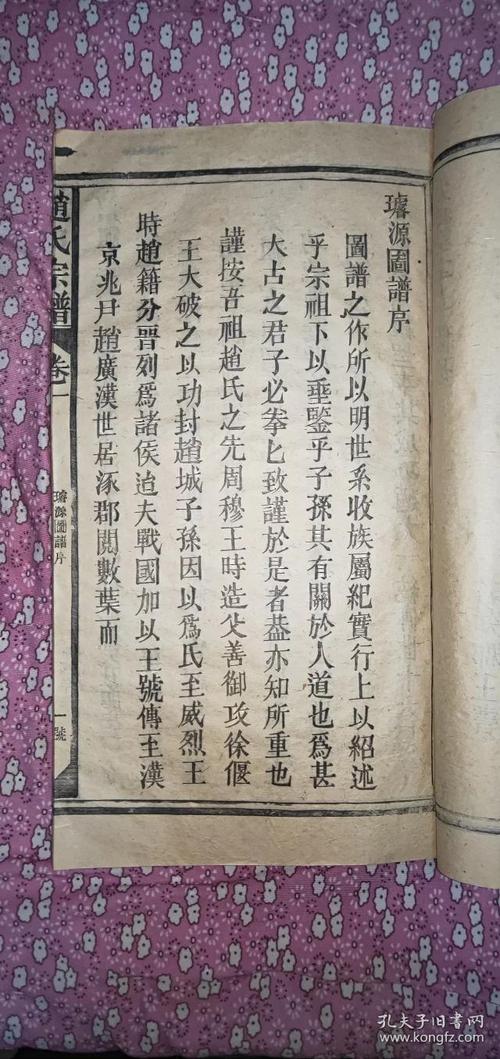 璿源圖譜序
圖譜之作所以明世系收族屬紀實行上以紹述
乎宗祖下以垂鑒乎子孫其有關於人道也爲甚
大古之君子必拳匕致謹於是者葢亦知所重也
謹按吾祖趙氏之先周穆王時造父善御攻徐偃
王大破之以功封趙城子孫因以爲氏至威烈王
時趙籍分晉列爲諸侯迨夫戰國加以王號傳至漢
京兆尹趙廣漢世居涿郡閱數葉而
趙氏宗譜
卷一
璿源圖譜序
一號
孔夫子旧书网
kongfz.com